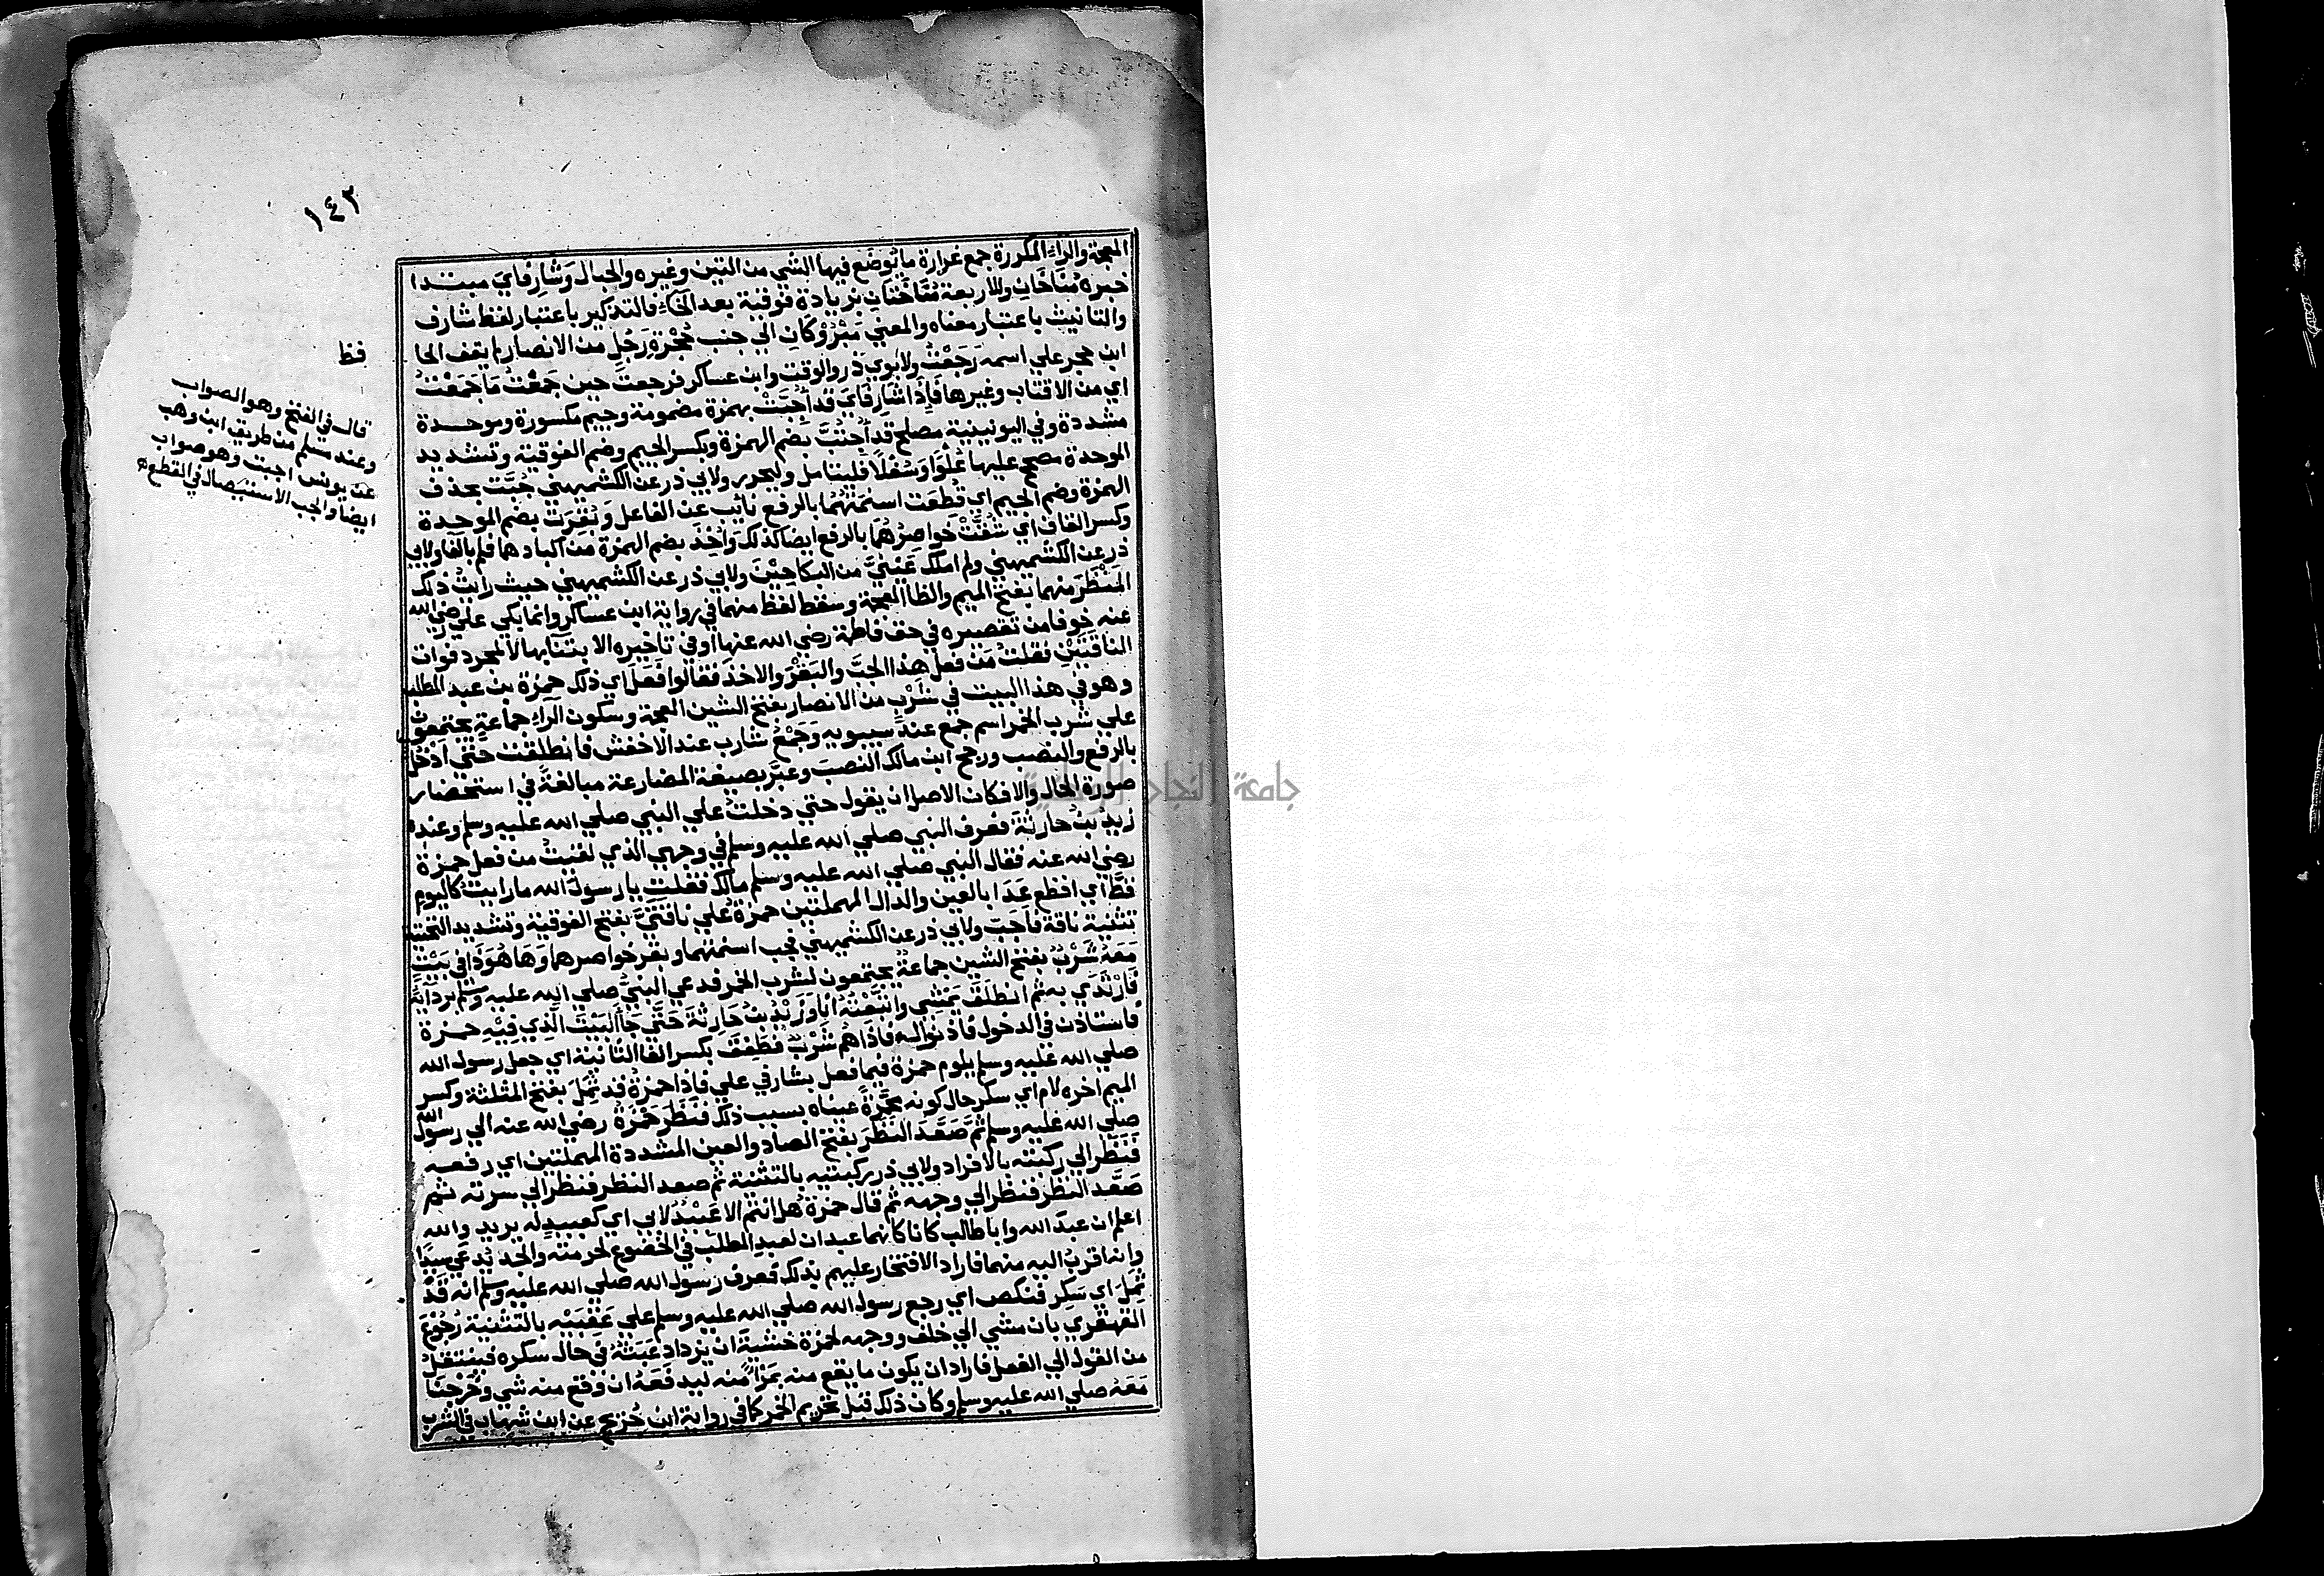 ١٤٢
المعجمة والراء المكررة جمع غرارة ما يُوضَع فيها الشي من التبن وغيره والحبال وَشَارِفَايَ مبتدا
خبره مُنَاخَانِ وللاربعة مُنَاخَتَانِ بزيادة فوقية بعد الخاء فالتذكير باعتبار لفظ شارف
والتانيث باعتبار معناه والمعني مَبْرُوْكَانِ الي جنب حُجْرَةِ رَجُلٍ من الانصار لم يقف الحا
فظ
ابن حجر علي اسمه رَجَعْتُ ولابوي ذر والوقت وابن عساكر فرجعت حين جَمَعْتُ مَا جَمَعْتُ
اي من الاقتاب وغيرها فَاِذَا شَارِفَايَ قد اُجِبَّتْ بهمزة مضمومة وجيم مكسورة وموحدة
مشددة وفي اليونينية مصلح قد اُجِبْتُّ بضم الهمزة وبكسر الجيم وضم الفوقية وتشديد
الموحدة مصحح عليها عُلْوًا وسُفْلًا فليتامل وليحرر ولابي ذر عن الكشميهني جُبَّت بحذف
الهمزة وضم الجيم اي قُطعَت اسنمتُهُما بالرفع نائب عن الفاعل وَبُقِرَتْ بضم الموحدة
وكسر القاف اي شُقَّتْ خَوَاصِرُهُمَا بالرفع ايضا كذلك وَاُخِذَ بضم الهمزة من اكبادها فلم بالفا ولابي
ذر عن الكشميهني ولم املك عَيْنَيَّ من البكا حِيْنَ ولابي ذر عن الكشميهني حيث رايتُ ذلك
المَنْظَرَ منهما بفتح الميم والظا المعجمة وسقط لفظ منهما في رواية ابن عساكر وانما بكي علي رضي الله
عنه خوفا من تقصيره في حق فاطمة رضي الله عنها او في تاخيره الابتنا بها لا لمجرد فوات
الناقَتَيْنِ فقلتُ مَنْ فعل هذا الجبَّ والبَقْرَ والاخذَ فقالوا فَعَلَ اي ذلك حمزةُ بن عبد المطلب
وهو في هذا البيت في شَرْبٍ من الانصار بفتح الشين المعجمة وسكون الراء جماعةٍ يجتمعون
علي شرب الخمر اسم جمع عند سيبويه وَجَمْعُ شارب عند الاخفش فانطلقت حتي ادخل
بالرفع والنصب ورجح ابن مالك النصبَ وعبَّر بصيغة المضارعة مبالغةً في استحضار
صورة الحال والا فكان الاصل ان يقول حتي دخلتُ علي النبي صلي الله عليه وسلم وعنده
زيدُ بنُ حارثةَ فعرف النبي صلي الله عليه وسلم في وجهي الذي لقيتُ من فعل حمزة
رضي الله عنه فقال النبي صلي الله عليه وسلم مالك فقلت يا رسولَ الله ما رايت كاليوم
قطَّ اي افظع عَدَا بالعين والدال المهملتين حمزةُ علي ناقتيَّ بفتح الفوقية وتشديد التحتية
تثنية ناقة فاَجَبَّ ولابي ذر عن الكشميهني فجب اسنمتهما وبقر خواصرهما وَهَا هُوَ ذَا في بَيْتٍ
مَعَهُ شَرْبٌ بفتح الشين جماعةٌ يجتمعون لشرب الخمر فدعي النبيُّ صلي الله عليه وسلم بردائه
فَارْتَدَي به ثم انطلَقَ يَمْشِي واتَّبَعْتُهُ انا وَزَيْدُ بنُ حَارِثةَ حَتَّي جَاَ البَيْتَ الَّذِي فِيْهِ حمزة
فاستاذن في الدخول فاذنوا له فاذا هُمْ شَرْبٌ فَطَفِقَ بكسر الفا الثانية اي جعل رسول الله
صلي الله عليه وسلم يلوم حمزة فيما فعل بشارفي علي فاِذَا حمزةُ قد ثَمِلَ بفتح المثلثة وكسر
الميم اخره لام اي سكر حال كونه مُحْمَرَّةً عيناه بسبب ذلك فَنَظَرَ حَمْزَةُ رضي الله عنه الي رسول الله
صلي الله عليه وسلم ثُمَّ صَعَّدَ النَّظَرَ بفتح الصاد والعين المشددة المهملتين اي رفعه
فَنَظَرَ الي ركبته بالافراد ولابي ذر ركبتيه بالتثنية ثم صعد النظر فنظر الي سرته ثم
صَعَّد النظر فنظر الي وجهه ثم قال حمزةُ هل انتم الا عَبِيْدٌ لابي اي كعبيدٍ له يريد والله
اعلم ان عبدَ الله وابا طالب كانا كانهما عبدان لعبد المطلب في الخضوع لحرمته والجد يُدعي سيدًا
وانه اقربُ اليه منهما فاراد الافتخار عليهم بذلك فعرف رسول الله صلي الله عليه وسلم انه قَدْ
ثَمِلَ اي سَكِر فنكص اي رجع رسول الله صلي الله عليه وسلم علي عَقِبَيْهِ بالتثنية رُجُوعَ
القهقري بان مشي الي خلف ووجهه لحمزة خشيةَ ان يزداد عَبَثُهُ في حال سكره فينتقل
من القول الي الفعل فاراد ان يكون ما يقع منه بمَرْاًي منه ليدفَعَهُ ان وقع منه شي وخَرَجْنَا
مَعَهُ صلي الله عليه وسلم وكان ذلك قبل تحريم الخمر كما في رواية ابن جُرَيج عن ابن شهاب في الشرب
قال في الفتح وهو الصواب
وعند مسلم من طريق ابن وهب
عن يونس اجبت وهو صواب
ايضا والجب الاستيصال في القطع
جامعة النجاح الوطنية